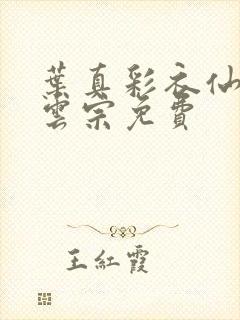 葉真彩衣仙
雲宗免費
王紅霞